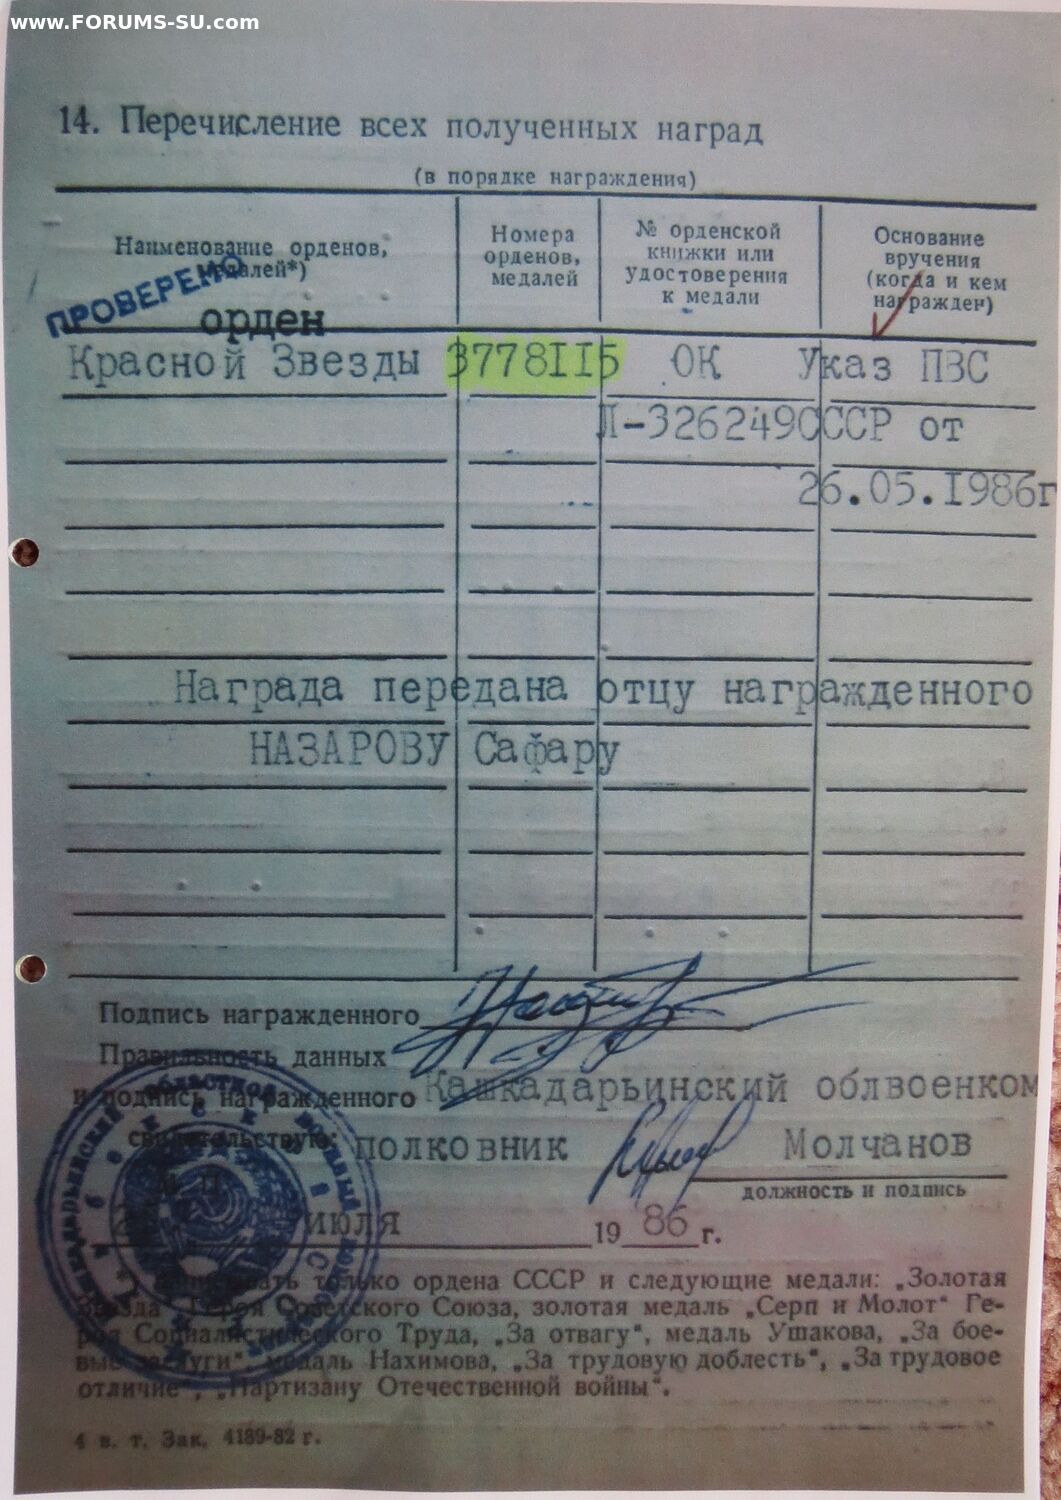 www.FORUMS-SU.com
14. Перечисление всех полученных наград
(в порядке награждения)
Наименование орденов, медалей*)
Номера орденов, медалей
№ орденской книжки или удостоверения к медали
Основание вручения (когда и кем награжден)
ПРОВЕРЕНО
орден
Красной Звезды 3778II5 ОК Указ ПВС
Л-326249 СССР от
26.05.I986г
Награда передана отцу награжденного
НАЗАРОВУ Сафару
Подпись награжденного
Правильность данных
и подпись награжденного Кашкадарьинский облвоенком
свидетельствую: полковник Молчанов
должность и подпись
М. П.
июля 19 86 г.
только ордена СССР и следующие медали: „Золотая
Звезда“ Героя Советского Союза, золотая медаль „Серп и Молот“ Ге-
роя Социалистического Труда, „За отвагу“, медаль Ушакова, „За бое-
вые заслуги“, медаль Нахимова, „За трудовую доблесть“, „За трудовое
отличие“, „Партизану Отечественной войны“.
4 в. т. Зак. 4189-82 г.